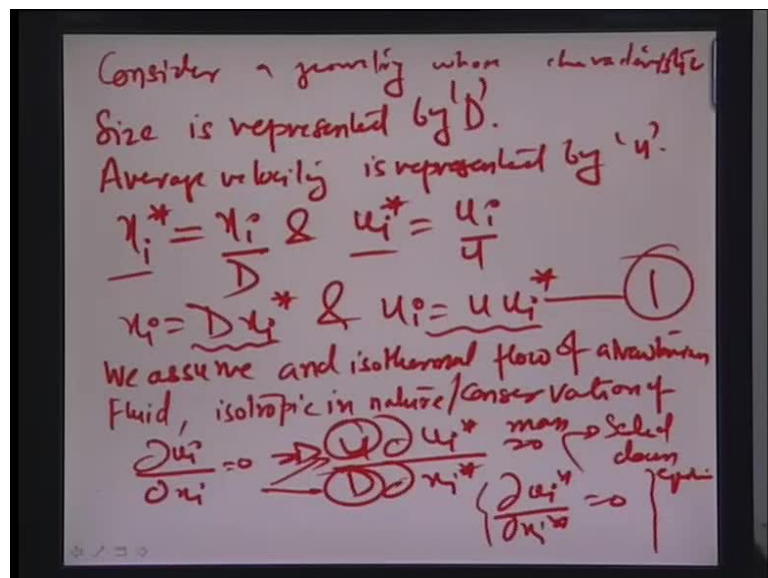 Consider a geometry whose characteristic
Size is represented by 'D'.
Average velocity is represented by 'u'.
xi* = xi/D & ui* = ui/u
xi = D xi* & ui = u ui* — 1
We assume and isothermal flow of a Newtonian
Fluid, isotropic in nature/Conservation of
∂ui/∂xi = 0 ⇒ u ∂ui*/D ∂xi* = 0 mass → Scaled down
{∂ui*/∂xi* = 0}